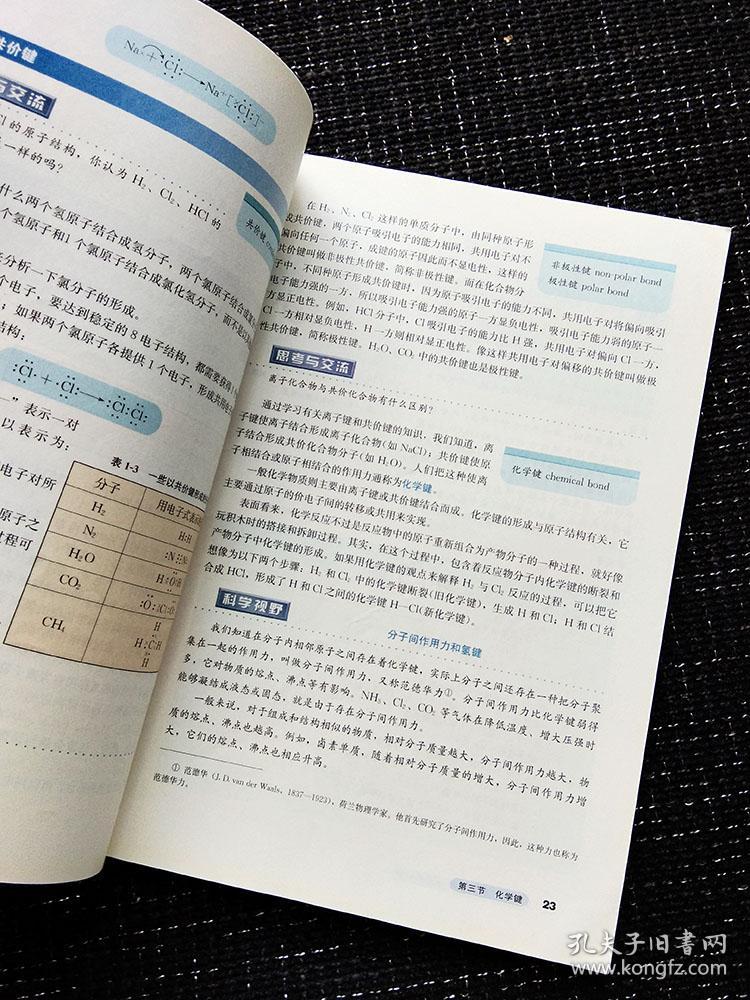 共价键
Na×+·Cl:→Na⁺[×Cl:]⁻
与交流
Cl的原子结构，你认为H₂、Cl₂、HCl的
一样的吗？
共价键
什么两个氢原子结合成氢分子，两个氯原子结合成氯
个氢原子和1个氯原子结合成氯化氢分子，而不是
分析一下氯分子的形成。
个电子，要达到稳定的8电子结构，都需要获得
；如果两个氯原子各提供1个电子，形成共用电子
结构：
:Cl·+·Cl:→:Cl:Cl:
”表示一对
以表示为：
电子对所
原子之
过程可
表1-3 一些以共价键形成的
分子
用电子式表示
H₂
H:H
N₂
:N⋮⋮N:
H₂O
H:O:H
CO₂
:O::C::O:
CH₄
H
H:C:H
H
在H₂、N₂、Cl₂这样的单质分子中，由同种原子形
成共价键，两个原子吸引电子的能力相同，共用电子对不
偏向任何一个原子，成键的原子因此而不显电性，这样的
共价键叫做非极性共价键，简称非极性键。而在化合物分
子中，不同种原子形成共价键时，因为原子吸引电子的能力不同，共用电子对将偏向吸引
电子能力强的一方，所以吸引电子能力强的原子一方显负电性，吸引电子能力弱的原子一
方显正电性。例如，HCl分子中，Cl吸引电子的能力比H强，共用电子对偏向Cl一方，
Cl一方相对显负电性，H一方则相对显正电性。像这样共用电子对偏移的共价键叫做极
性共价键，简称极性键。H₂O、CO₂中的共价键也是极性键。
非极性键 non-polar bond
极性键 polar bond
思考与交流
离子化合物与共价化合物有什么区别？
通过学习有关离子键和共价键的知识，我们知道，离
子键使离子结合形成离子化合物（如NaCl）；共价键使原
子结合形成共价化合物分子（如H₂O）。人们把这种使离
子相结合或原子相结合的作用力通称为化学键。
化学键 chemical bond
一般化学物质则主要由离子键或共价键结合而成。化学键的形成与原子结构有关，它
主要通过原子的价电子间的转移或共用来实现。
表面看来，化学反应不过是反应物中的原子重新组合为产物分子的一种过程，就好像
玩积木时的搭接和拆卸过程。其实，在这个过程中，包含着反应物分子内化学键的断裂和
产物分子中化学键的形成。如果用化学键的观点来解释H₂与Cl₂反应的过程，可以把它
想像为以下两个步骤：H₂和Cl₂中的化学键断裂（旧化学键），生成H和Cl；H和Cl结
合成HCl，形成了H和Cl之间的化学键H—Cl（新化学键）。
科学视野
分子间作用力和氢键
我们知道在分子内相邻原子之间存在着化学键，实际上分子之间还存在一种把分子聚
集在一起的作用力，叫做分子间作用力，又称范德华力①。分子间作用力比化学键弱得
多，它对物质的熔点、沸点等有影响。NH₃、Cl₂、CO₂等气体在降低温度、增大压强时
能够凝结成液态或固态，就是由于存在分子间作用力。
一般来说，对于组成和结构相似的物质，相对分子质量越大，分子间作用力越大，物
质的熔点、沸点也越高。例如，卤素单质，随着相对分子质量的增大，分子间作用力增
大，它们的熔点、沸点也相应升高。
① 范德华（J. D. van der Waals，1837—1923），荷兰物理学家。他首先研究了分子间作用力，因此，这种力也称为
范德华力。
第三节 化学键 23
孔夫子旧书网
www.kongfz.com